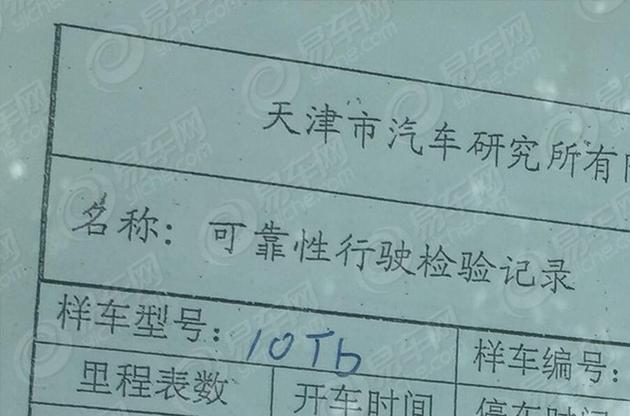 天津市汽车研究所有
名称：可靠性行驶检验记录
样车型号：10Tb 样车编号：
里程表数 开车时间 停车时间